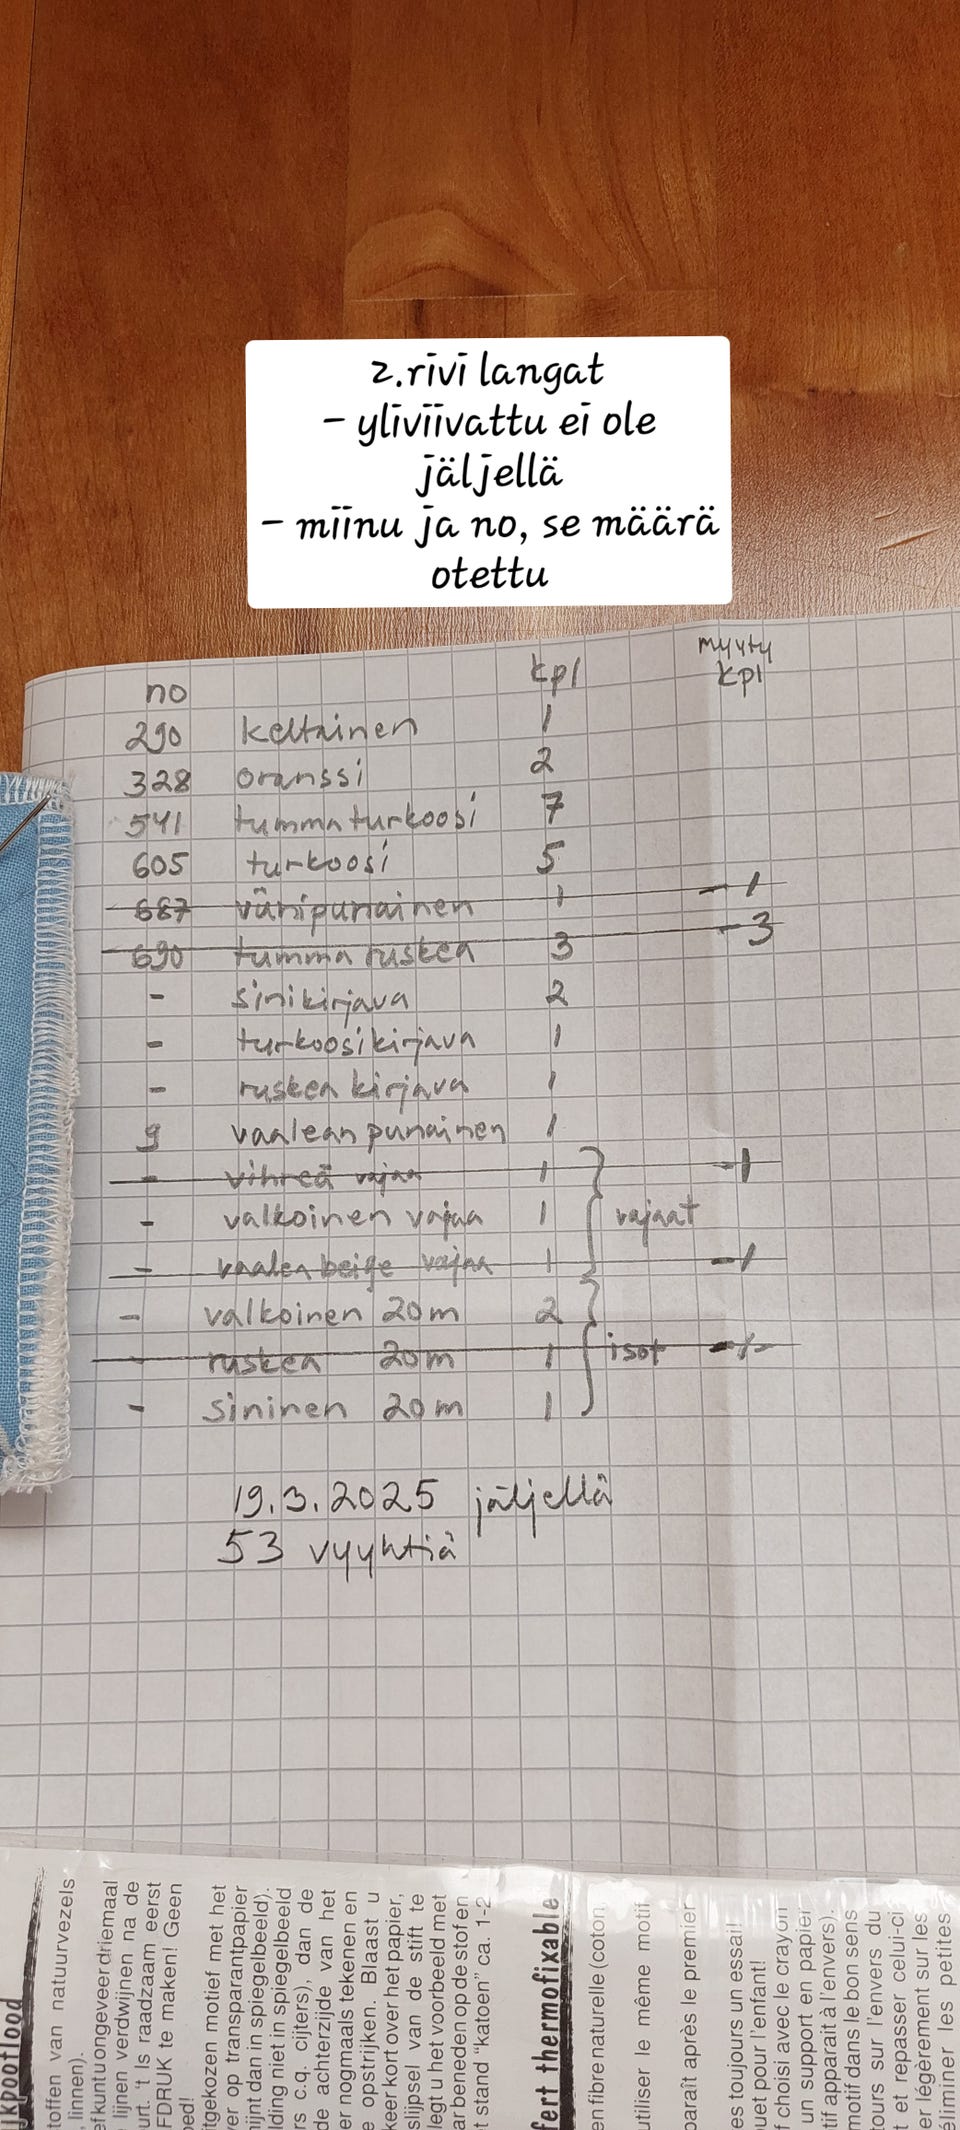 2.rivi langat
- yliviivattu ei ole
jäljellä
- miinu ja no, se määrä
otettu
no kpl myyty kpl
290 keltainen 1
328 oranssi 2
541 tumma turkoosi 7
605 turkoosi 5
687 viinipunainen 1 -1
690 tumma ruskea 3 -3
- sinikirjava 2
- turkoosikirjava 1
- ruskea kirjava 1
9 vaalean punainen 1
- vihreä vajaa 1 -1
- valkoinen vajaa 1 vajaat
- vaalea beige vajaa 1 -1
- valkoinen 20m 2
- ruskea 20m 1 isot -1-
- sininen 20m 1
19.3.2025 jäljellä
53 vyyhtiä
jkpootlood
toffen van natuurvezels
, linnen).
efkuntuongeveerdriemaal
lijnen verdwijnen na de
urt. 't Is raadzaam eerst
FDRUK te maken! Geen
oed!
itgekozen motief met het
ver op transparantpapier
nijnt dan in spiegelbeeld).
lding niet in spiegelbeeld
rs c.q. cijters), dan de
de achterzijde van het
er nogmaals tekenen en
e opstrijken. Blaast u
keer kort over het papier,
slijpsel van de stift te
legt u het voorbeeld met
ar beneden op de stof en
t stand "katoen" ca. 1-2
fert thermofixable
en fibre naturelle (coton,
utiliser le même motif
paraît après le premier
es toujours un essai!
uet pour l'enfant!
f choisi avec le crayon
un support en papier
tif apparait à l'envers).
motif dans le bon sens
tours sur l'envers du
t et repasser celui-ci
er légèrement sur les
éliminer les petites